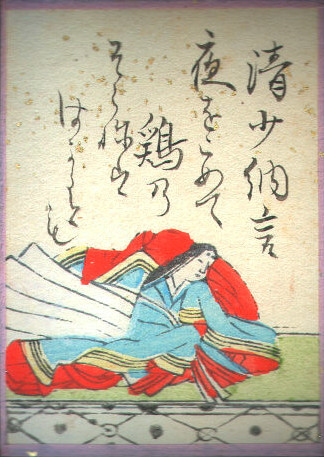 清少納言
夜をこめて
鶏乃
そら祢は
はかるとも